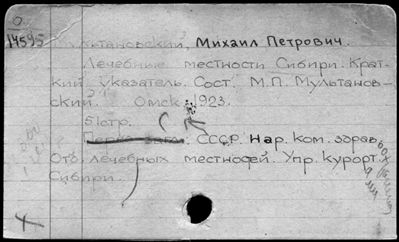 О
14595
Мультановский, Михаил Петрович.
Лечебные местности Сибири. Крат-
кий указатель. Сост. М.П. Мультанов-
ский. Омск 1923.
51стр.
СССР. Нар. ком. здрав.
Отд. лечебных местностей. Упр. курорт.
Сибири.